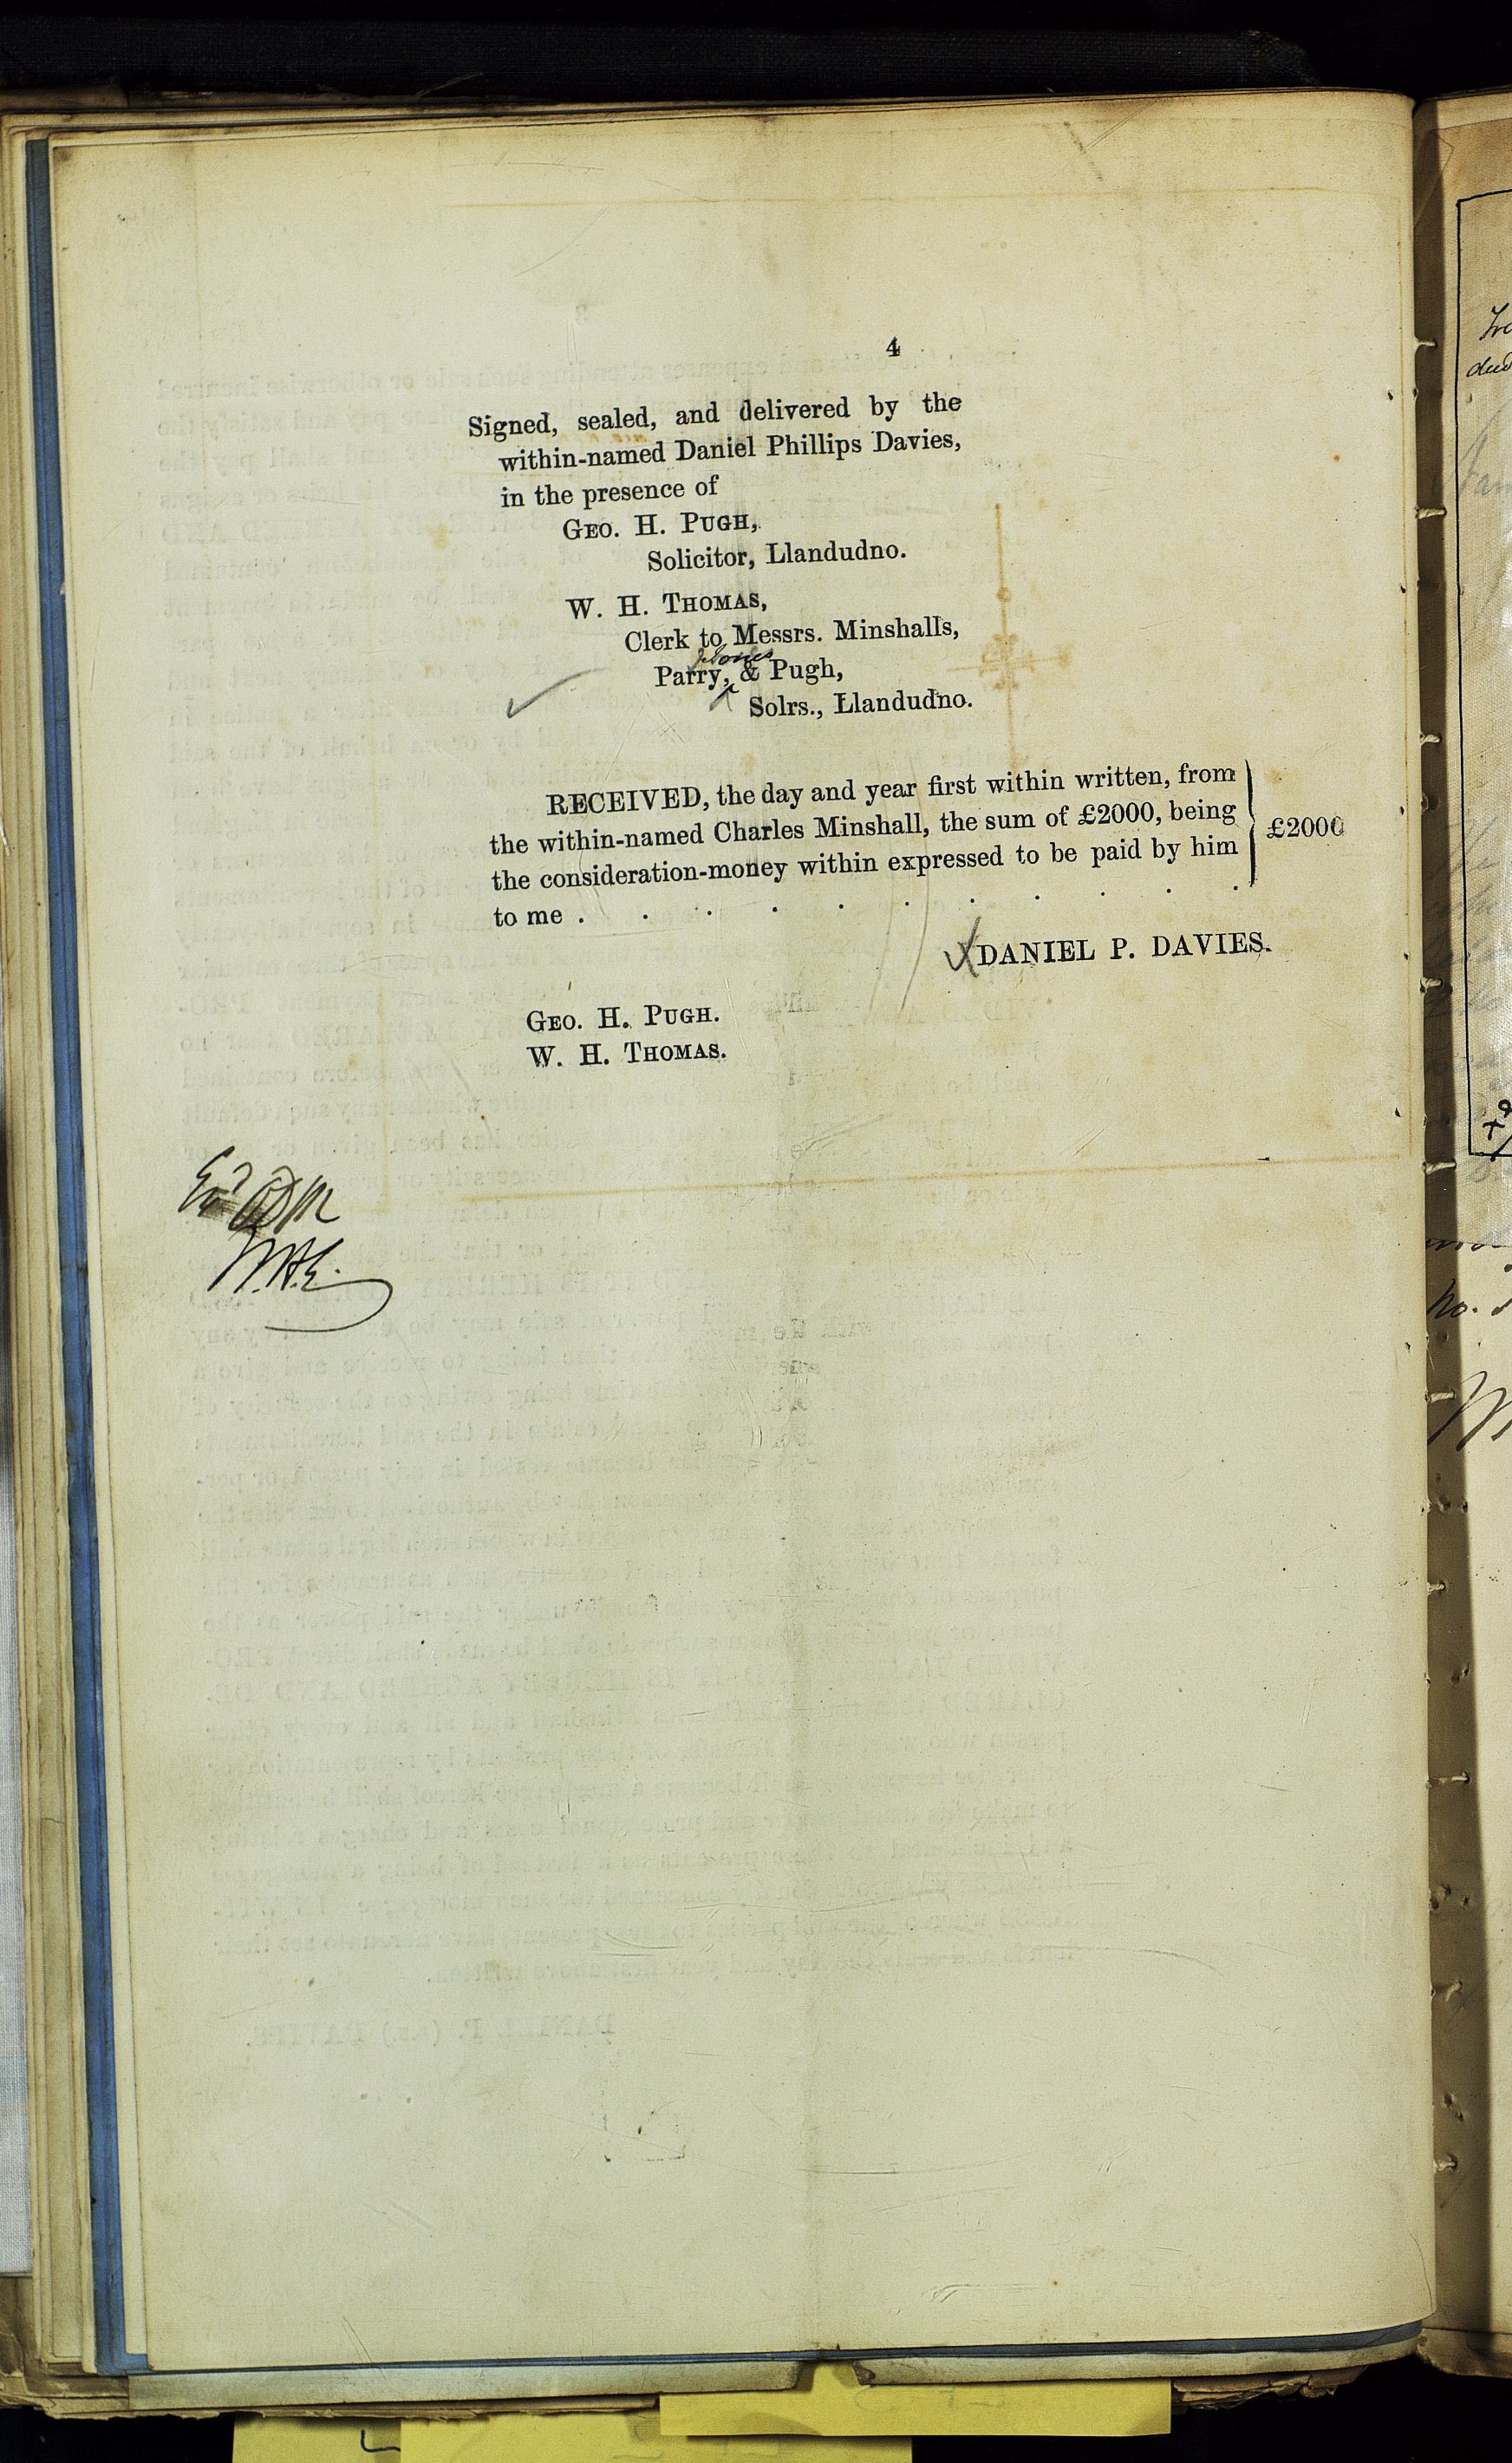 4
Signed, sealed, and delivered by the
within-named Daniel Phillips Davies,
in the presence of
GEO. H. PUGH,
Solicitor, Llandudno.
W. H. THOMAS,
Clerk to Messrs. Minshalls,
Jones
Parry, & Pugh,
Solrs., Llandudno.
RECEIVED, the day and year first within written, from
the within-named Charles Minshall, the sum of £2000, being
the consideration-money within expressed to be paid by him
to me . . . . . . . . . . .
£2000
DANIEL P. DAVIES.
GEO. H. PUGH.
W. H. THOMAS.